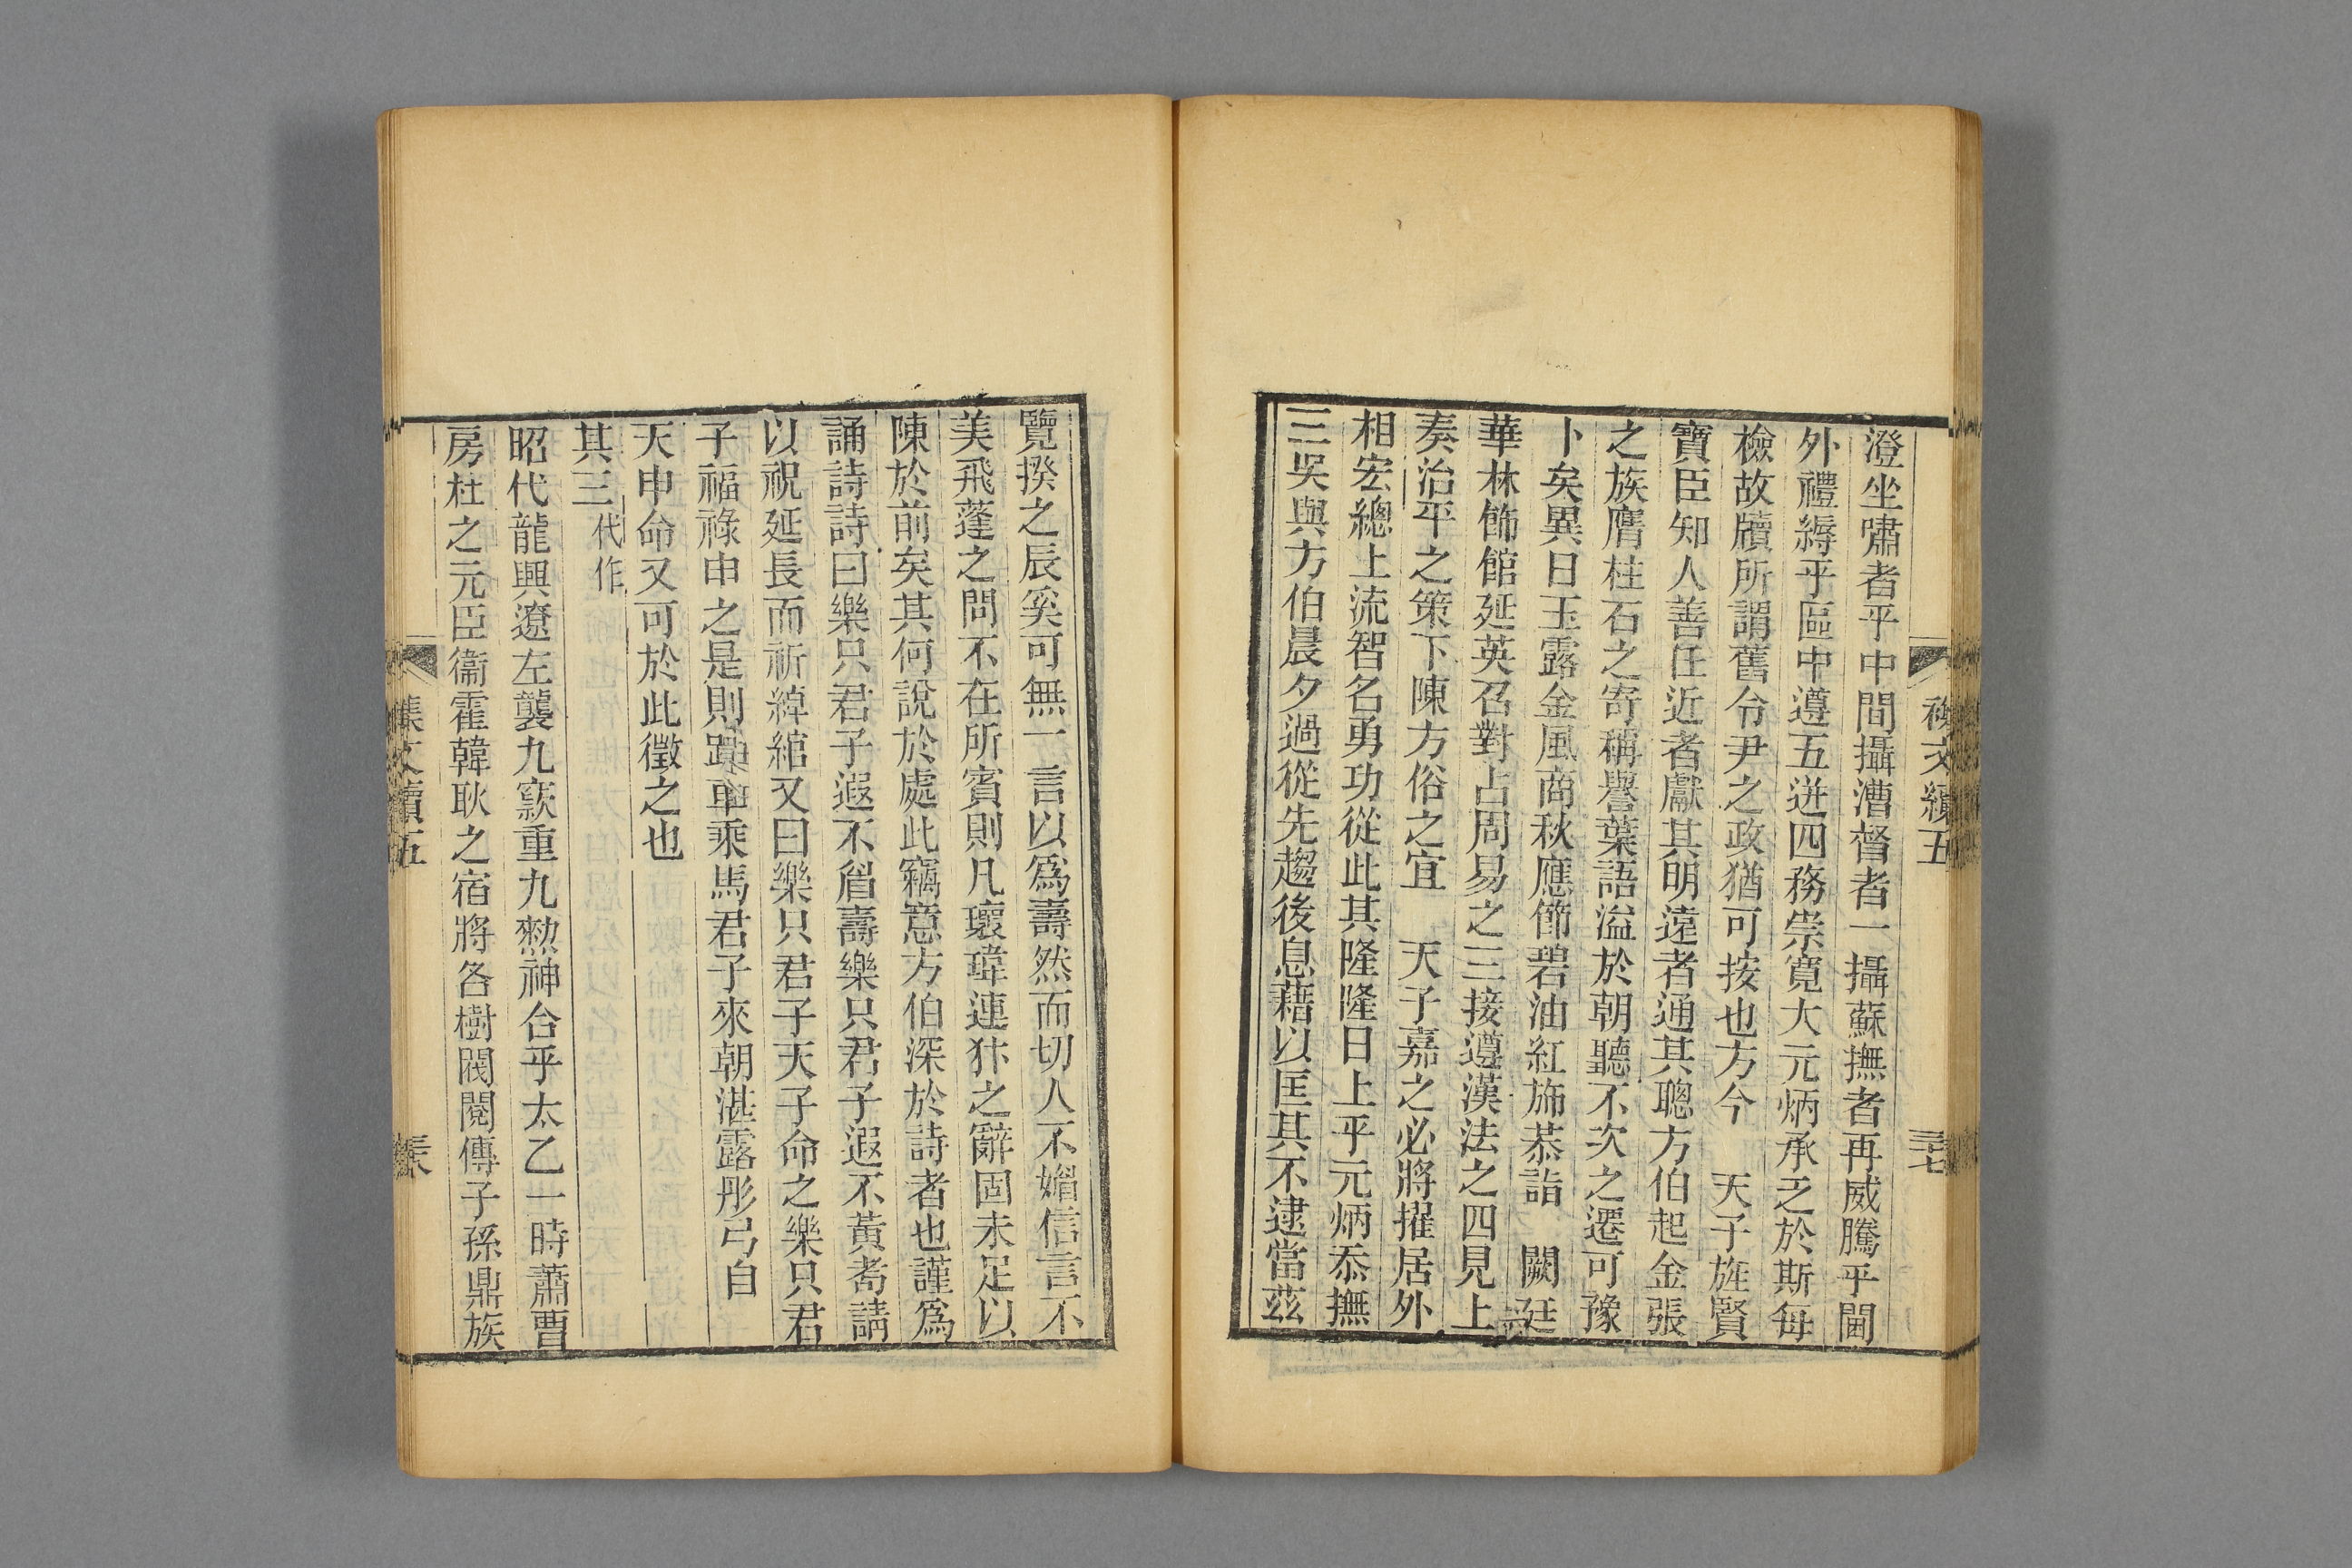 澄坐嘯者乎中間攝漕督者一攝蘇撫者再威騰乎閫
外禮縟乎區中遵五迸四務崇寬大元炳承乏於斯每
檢故牘所謂舊令尹之政猶可按也方今 天子旌賢
寶臣知人善任近者獻其明遠者通其聰方伯起金張
之族膺柱石之寄稱譽葉語溢於朝聽不次之遷可豫
卜矣異日玉露金風商秋應節碧油紅斾恭詣 闕廷
華林飾館延英召對占周易之三接遵漢法之四見上
奏治平之策下陳方俗之宜 天子嘉之必將擢居外
相宏總上流智名勇功從此其隆隆日上乎元炳忝撫
三吳與方伯晨夕過從先趨後息藉以匡其不逮當茲
覽揆之辰奚可無一言以爲壽然而切人不媚信言不
美飛蓬之問不在所賓則凡瓌瑋連犿之辭固未足以
陳於前矣其何說於處此竊意方伯深於詩者也謹爲
誦詩詩曰樂只君子遐不眉壽樂只君子遐不黃耇請
以祝延長而祈綽綰又曰樂只君子天子命之樂只君
子福祿申之是則路車乘馬君子來朝湛露彤弓自
天申命又可於此徵之也
其三代作
昭代龍興遼左襲九窾重九㙜神合乎太乙一時蕭曹
房杜之元臣衞霍韓耿之宿將各樹閥閱傳子孫鼎族
襍文續五
三七